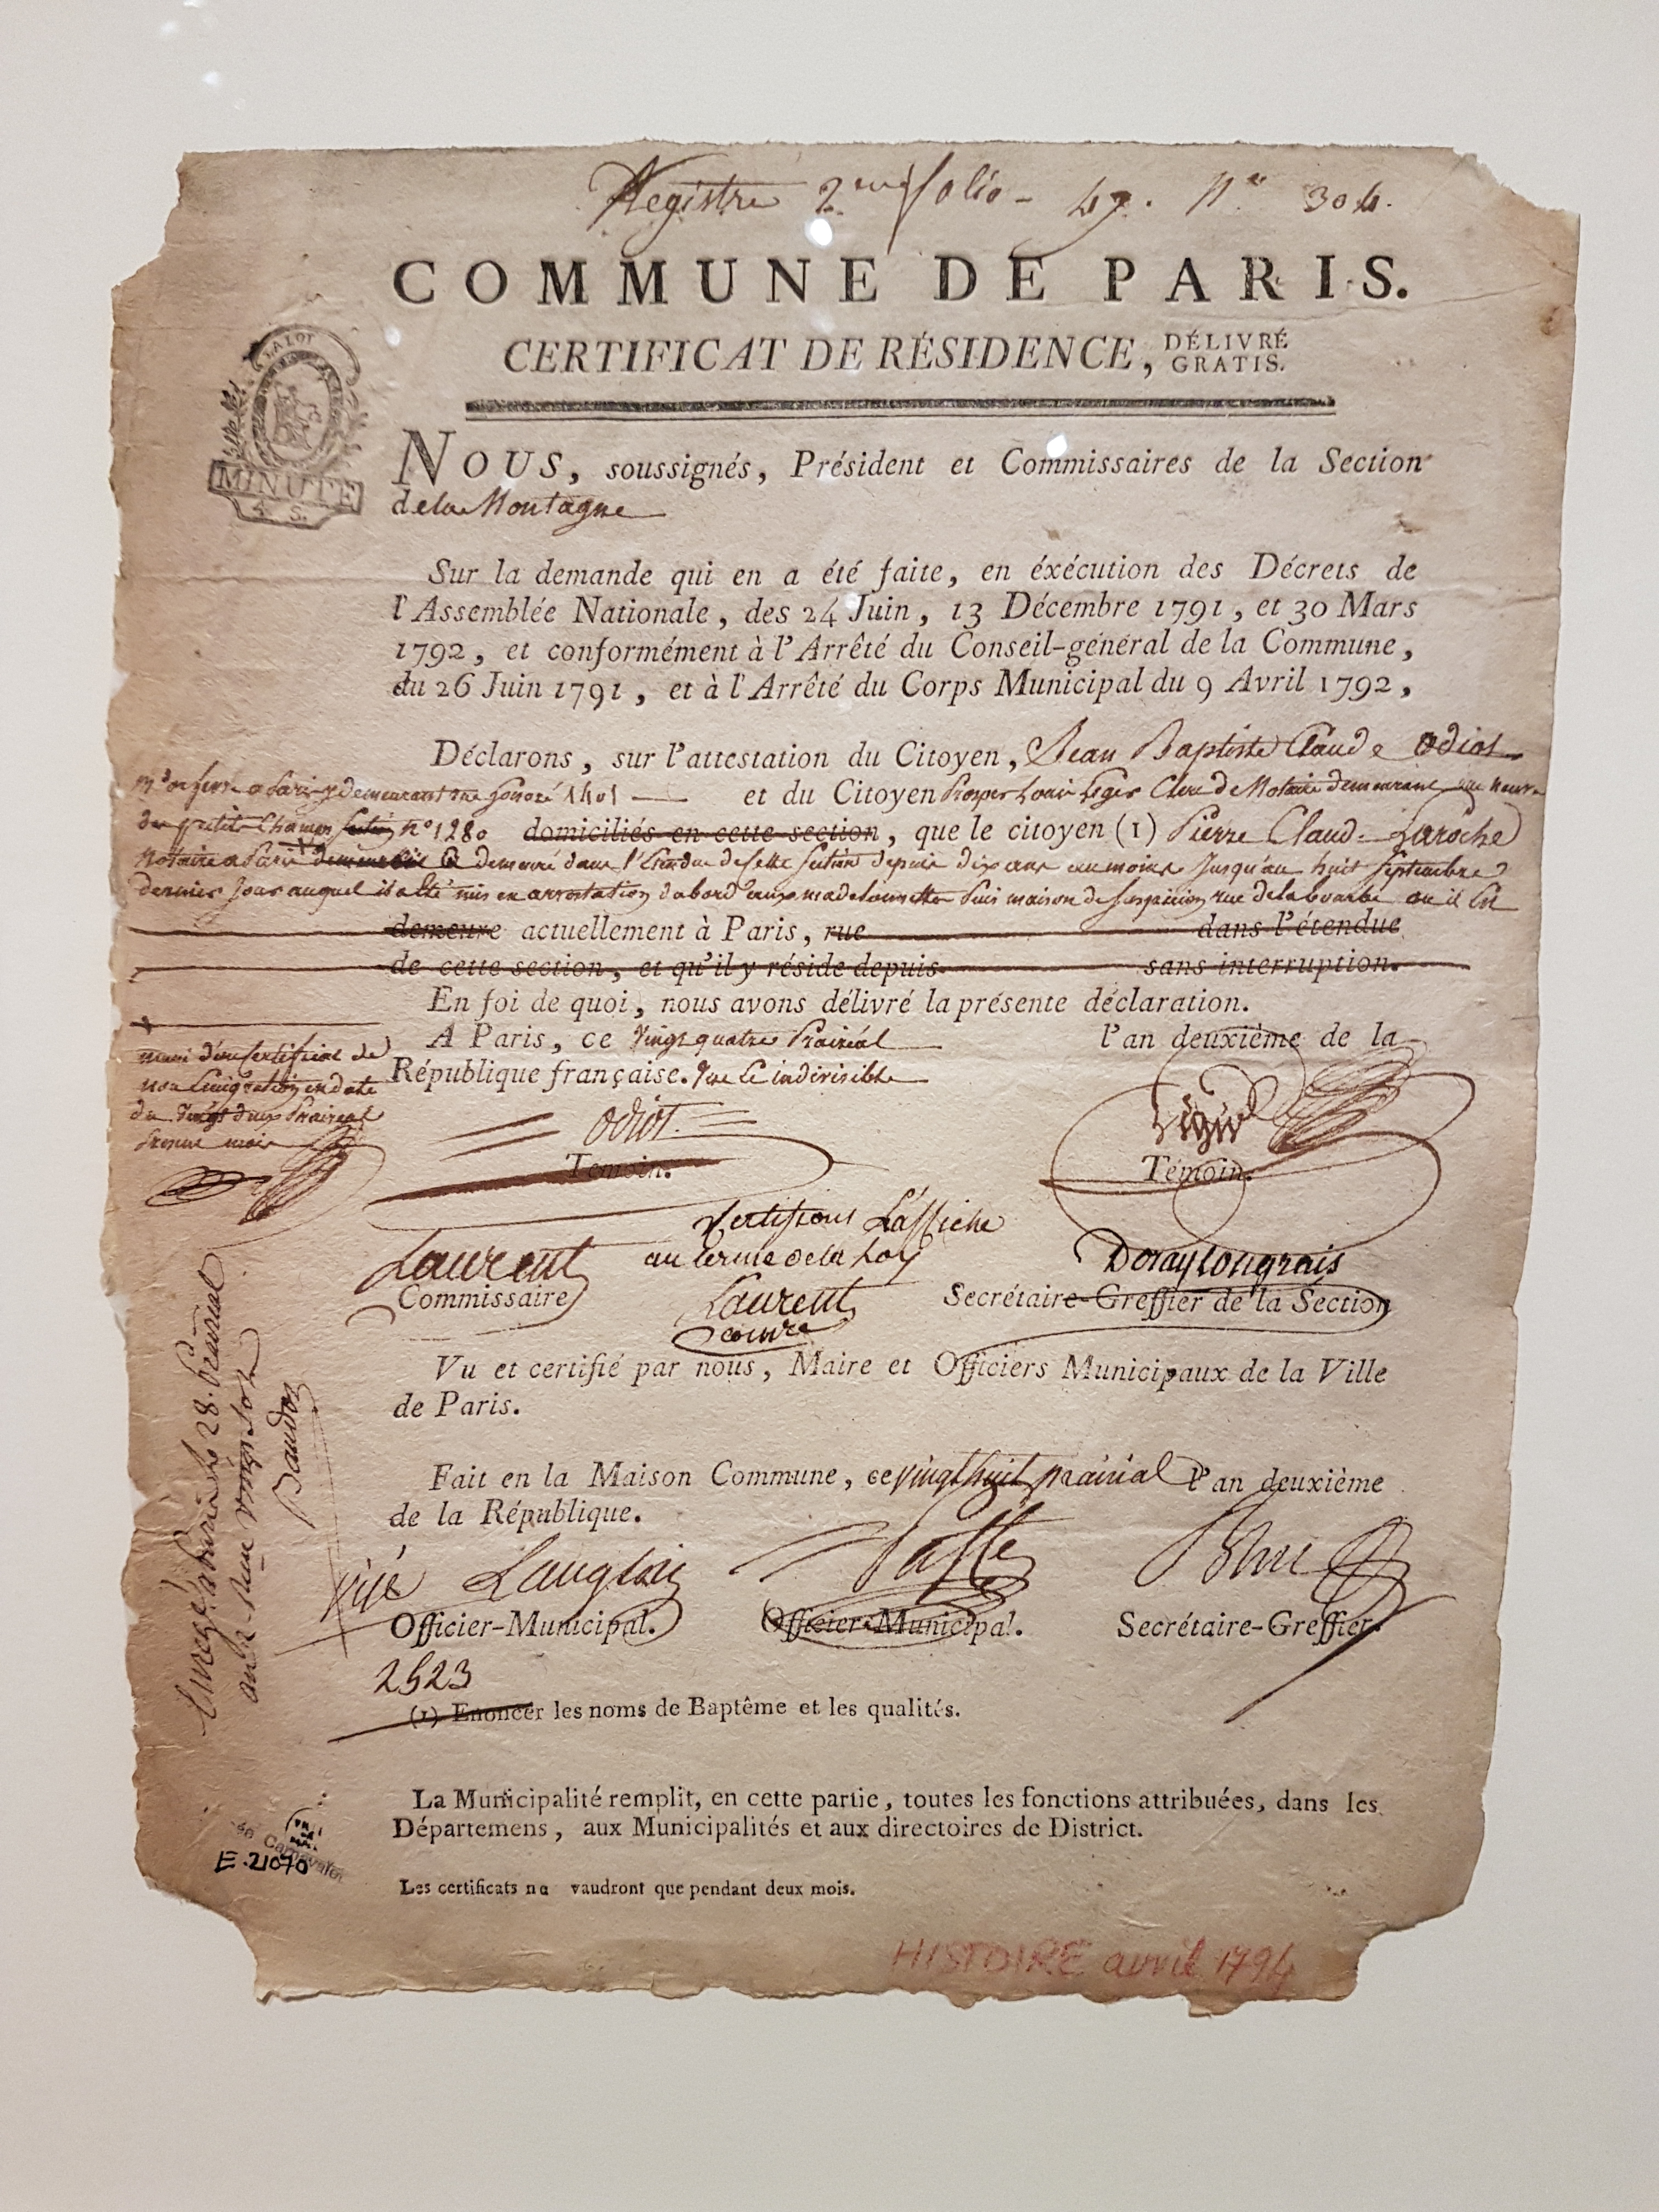 Registre 2eme folio - 47. N° 304.
COMMUNE DE PARIS.
CERTIFICAT DE RÉSIDENCE, DÉLIVRÉ GRATIS.
LA LOI
MINUTE
4 S.
NOUS, soussignés, Président et Commissaires de la Section
de la Montagne
Sur la demande qui en a été faite, en éxécution des Décrets de
l'Assemblée Nationale, des 24 Juin, 13 Décembre 1791, et 30 Mars
1792, et conformément à l'Arrêté du Conseil-général de la Commune,
du 26 Juin 1791, et à l'Arrêté du Corps Municipal du 9 Avril 1792,
Déclarons, sur l'attestation du Citoyen, Jean Baptiste Claude Odiot
md orfevre a Paris y demeurant rue honoré 1401 et du Citoyen Prosper Louis Leger Claude Notaire demeurant rue neuve
des petits Champs n° 1280 domiciliés en cette section, que le citoyen (1) Pierre Claude Laroche
Notaire a Paris a demeuré dans l'Etendue de cette Section depuis dix ans au moins Jusqu'au huit Septembre
dernier Jour auquel il a été mis en arrestation dabord aux madelonnettes puis maison de suspicion rue de la bourbe ou il Est
demeure actuellement à Paris, rue dans l'étendue
de cette section, et qu'il y réside depuis sans interruption.
En foi de quoi, nous avons délivré la présente déclaration.
A Paris, ce vingt quatre Prairéal l'an deuxième de la
République française. Une Et indivisible
muni d'un Certificat de
non Emigration en date
du vingt deux Prairial
mois
Odiot
Témoin. Témoin.
Certifions L'affiche
au terme de la Loy
Laurent
Commissaire
Laurent
comre
Doraylongrais
Secrétaire-Greffier de la Section
Vu et certifié par nous, Maire et Officiers Municipaux de la Ville
de Paris.
Fait en la Maison Commune, ce vingt huit prairial l'an deuxième
de la République.
Langlois
Officier-Municipal. Officier-Municipal. Secrétaire-Greffier.
2523
(1) Enoncer les noms de Baptême et les qualités.
Enregé a Paris le 28. prairial
Baudoz
La Municipalité remplit, en cette partie, toutes les fonctions attribuées, dans les
Départemens, aux Municipalités et aux directoires de District.
Carnavalet
E.21070
Les certificats ne vaudront que pendant deux mois.
HISTOIRE avril 1794